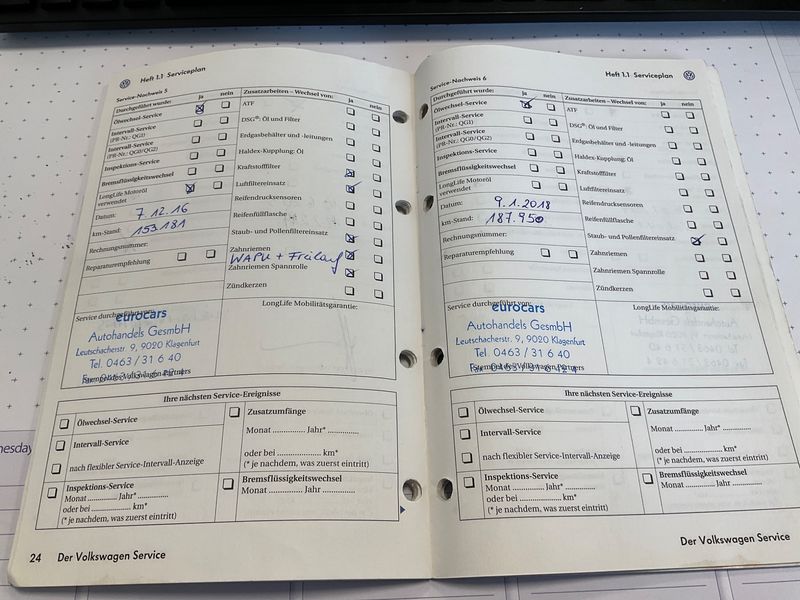 Heft 1.1 Serviceplan
Service-Nachweis 5
Durchgeführt wurde: ja nein
Ölwechsel-Service
Intervall-Service
(PR-Nr.: QG1)
Intervall-Service
(PR-Nr.: QG0/QG2)
Inspektions-Service
Bremsflüssigkeitswechsel
LongLife Motoröl
verwendet
Datum: 7.12.16
km-Stand: 153181
Rechnungsnummer:
Reparaturempfehlung
Zusatzarbeiten – Wechsel von: ja nein
ATF
DSG®: Öl und Filter
Erdgasbehälter und -leitungen
Haldex-Kupplung: Öl
Kraftstofffilter
Luftfiltereinsatz
Reifendrucksensoren
Reifenfüllflasche
Staub- und Pollenfiltereinsatz
Zahnriemen
WAPU + Freilauf
Zahnriemen Spannrolle
Zündkerzen
Service durchgeführt von:
eurocars
Autohandels GesmbH
Leutschacherstr. 9, 9020 Klagenfurt
Tel. 0463 / 31 6 40
Stempel des Volkswagen Partners
LongLife Mobilitätsgarantie:
Ihre nächsten Service-Ereignisse
Ölwechsel-Service
Intervall-Service
nach flexibler Service-Intervall-Anzeige
Inspektions-Service
Monat ............ Jahr* ..............
oder bei .................. km*
(* je nachdem, was zuerst eintritt)
Zusatzumfänge
Monat ............ Jahr* ..............
oder bei .................. km*
(* je nachdem, was zuerst eintritt)
Bremsflüssigkeitswechsel
Monat ............ Jahr ..............
24 Der Volkswagen Service
Heft 1.1 Serviceplan
Service-Nachweis 6
Durchgeführt wurde: ja nein
Ölwechsel-Service
Intervall-Service
(PR-Nr.: QG1)
Intervall-Service
(PR-Nr.: QG0/QG2)
Inspektions-Service
Bremsflüssigkeitswechsel
LongLife Motoröl
verwendet
Datum: 9.1.2018
km-Stand: 187.950
Rechnungsnummer:
Reparaturempfehlung
Zusatzarbeiten – Wechsel von: ja nein
ATF
DSG®: Öl und Filter
Erdgasbehälter und -leitungen
Haldex-Kupplung: Öl
Kraftstofffilter
Luftfiltereinsatz
Reifendrucksensoren
Reifenfüllflasche
Staub- und Pollenfiltereinsatz
Zahnriemen
Zahnriemen Spannrolle
Zündkerzen
Service durchgeführt von:
eurocars
Autohandels GesmbH
Leutschacherstr. 9, 9020 Klagenfurt
Tel. 0463 / 31 6 40
Stempel des Volkswagen Partners
LongLife Mobilitätsgarantie:
Ihre nächsten Service-Ereignisse
Ölwechsel-Service
Intervall-Service
nach flexibler Service-Intervall-Anzeige
Inspektions-Service
Monat ............ Jahr* ..............
oder bei .................. km*
(* je nachdem, was zuerst eintritt)
Zusatzumfänge
Monat ............ Jahr* ..............
oder bei .................. km*
(* je nachdem, was zuerst eintritt)
Bremsflüssigkeitswechsel
Monat ............ Jahr ..............
Der Volkswagen Service